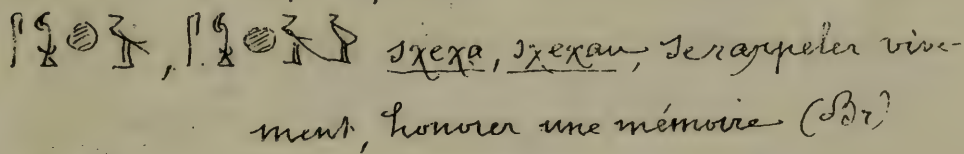 sχeχa, sχeχau, se rappeler vive-
ment, honorer une mémoire (Br)